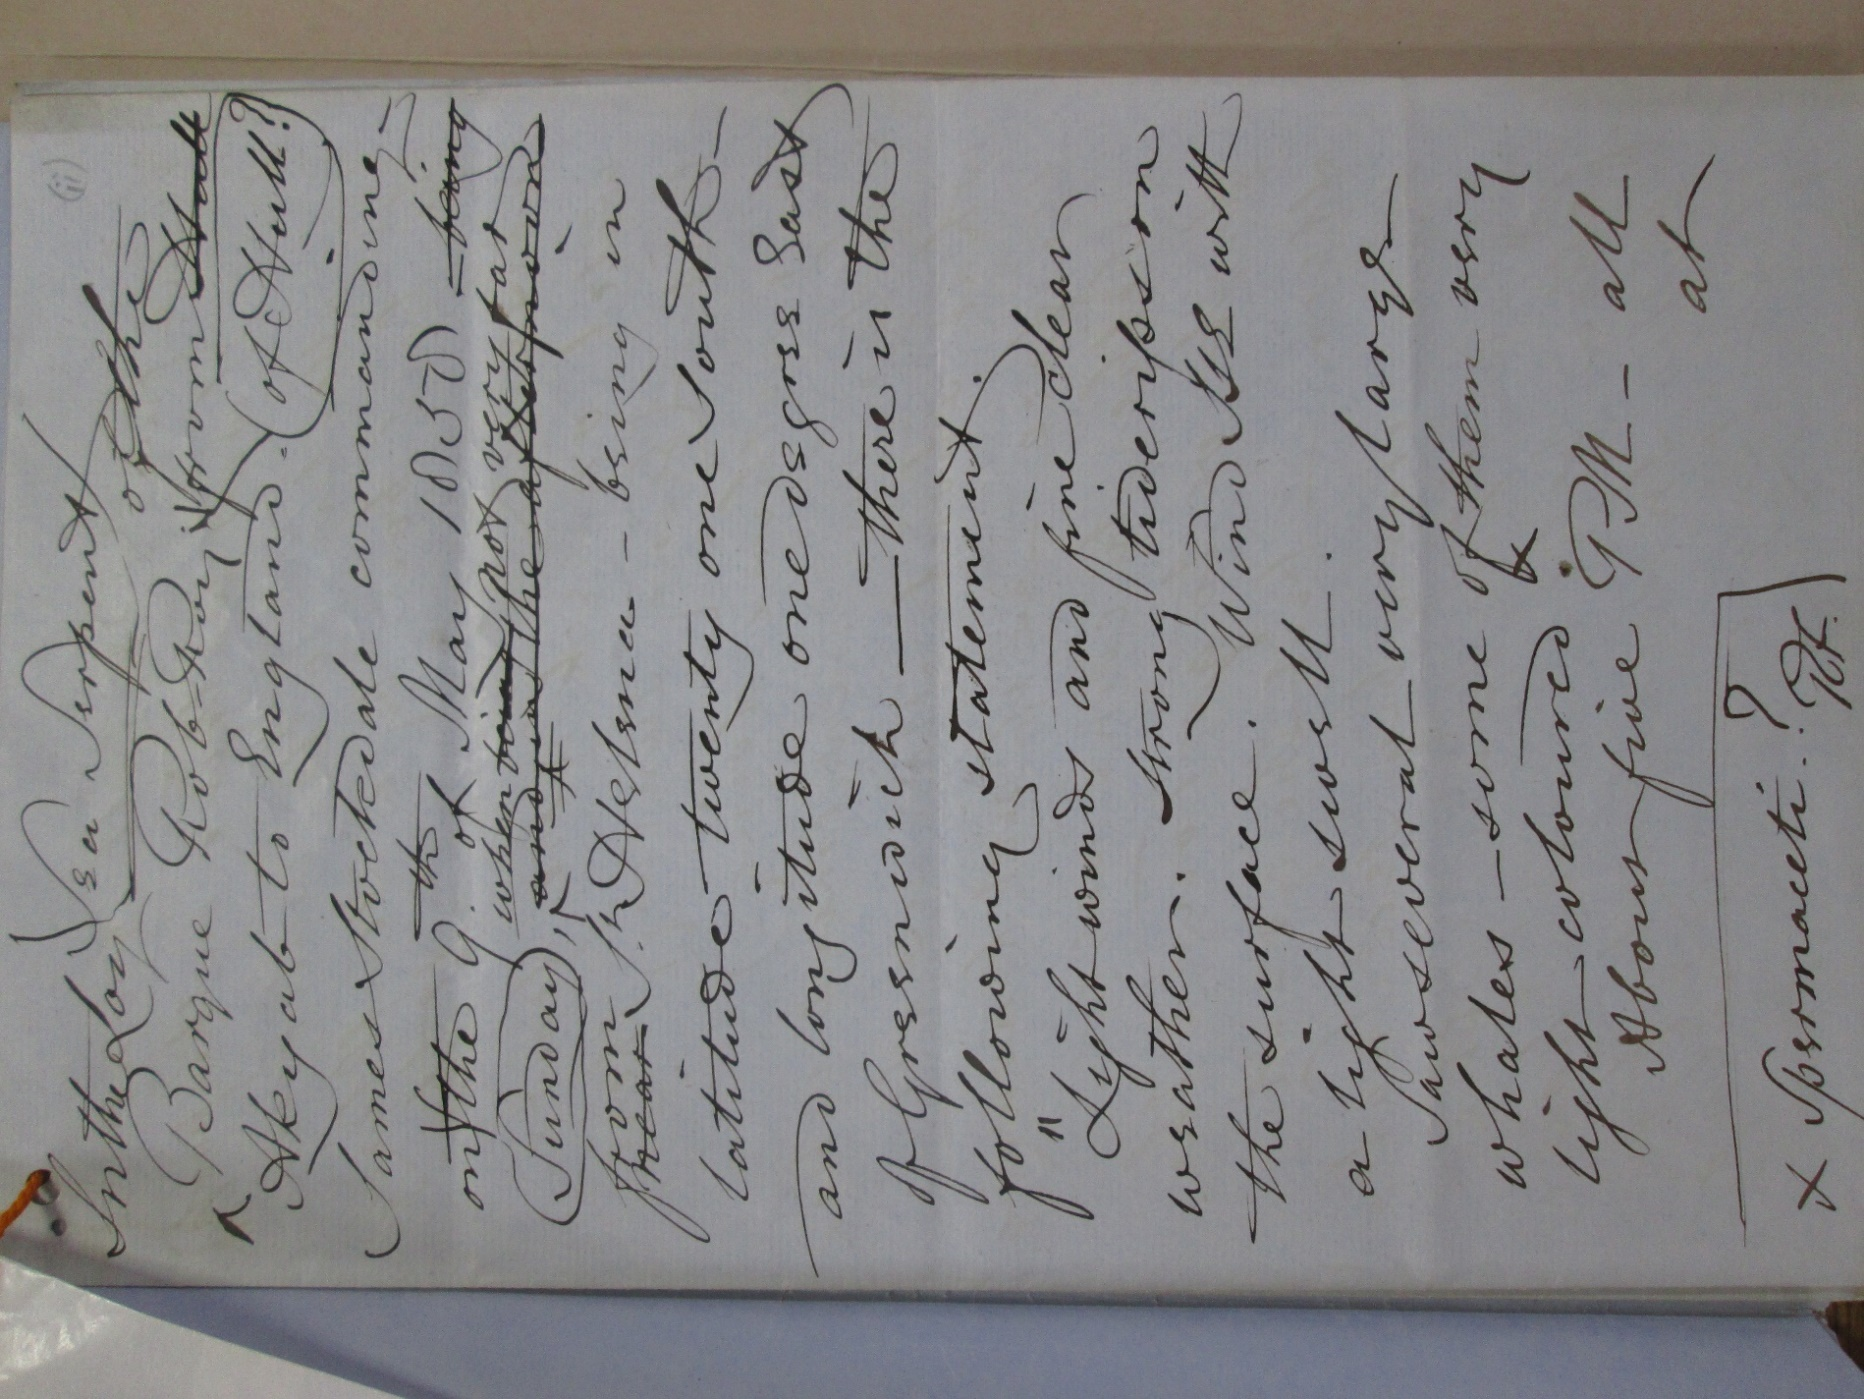 (ii)
Sea Serpent
In the Log of the
Barque Rob-Roy from Hull
(of Hull?)
Akyab to England.
James Stockdale commanding —
on the 9th of May 1830) being
when being not very far
(Sunday), and in the afternoon
from near St Helena - being in
latitude twenty one South —
and longitude one degree East
of Greenwich — there is the
following statement.
"Light winds and fine clear
weather. Strong tide rips on
the surface. Wind SSE with
a light swell.
Saw several very large
whales — some of them very
light coloured x
About five PM — all
at
x Spermaceti?